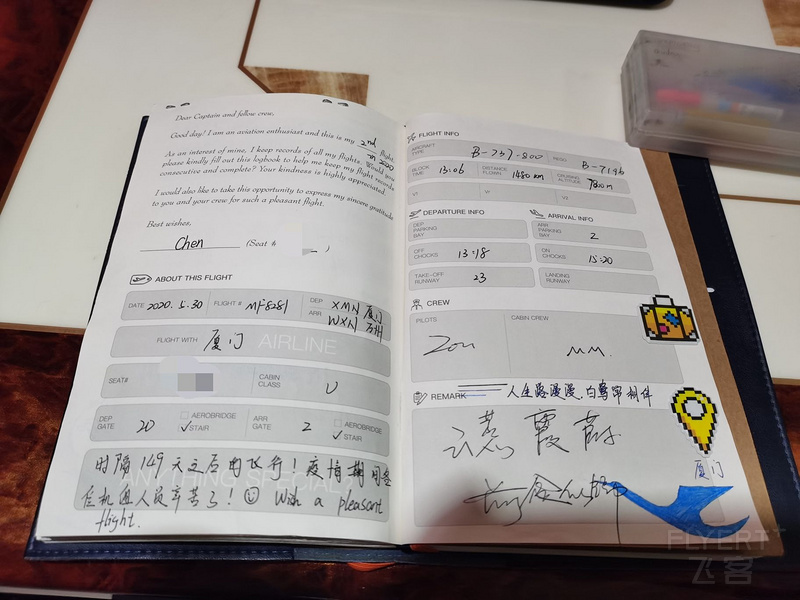 Dear Captain and fellow crew,
Good day! I am an aviation enthusiast and this is my 2nd flight
in 2020
As an interest of mine, I keep records of all my flights. Would you
please kindly fill out this logbook to help me keep my flight records
consecutive and complete? Your kindness is highly appreciated.
I would also like to take this opportunity to express my sincere gratitude
to you and your crew for such a pleasant flight.
Best wishes,
Chen (Seat # )
ABOUT THIS FLIGHT
DATE 2020.5.30 FLIGHT # MF8281 DEP XMN 厦门
ARR WXN 万州
FLIGHT WITH 厦门 AIRLINE
SEAT# CABIN CLASS U
DEP GATE 20 AEROBRIDGE ✓STAIR ARR GATE 2 AEROBRIDGE ✓STAIR
ANYTHING SPECIAL?
时隔149天之后的飞行！疫情期间各
位机组人员辛苦了！☺ With a pleasant
flight.
FLIGHT INFO
AIRCRAFT TYPE B-737-800 REG B-7196
BLOCK TIME 13:06 DISTANCE FLOWN 1480 km CRUISING ALTITUDE 7800m
V1 Vr V2
DEPARTURE INFO ARRIVAL INFO
DEP PARKING BAY ARR PARKING BAY 2
OFF CHOCKS 13:18 ON CHOCKS 15:20
TAKE-OFF RUNWAY 23 LANDING RUNWAY
CREW
PILOTS Zou CABIN CREW M.M.
REMARK 人生路漫漫，白鹭常相伴
厦门
FLYERT
飞客